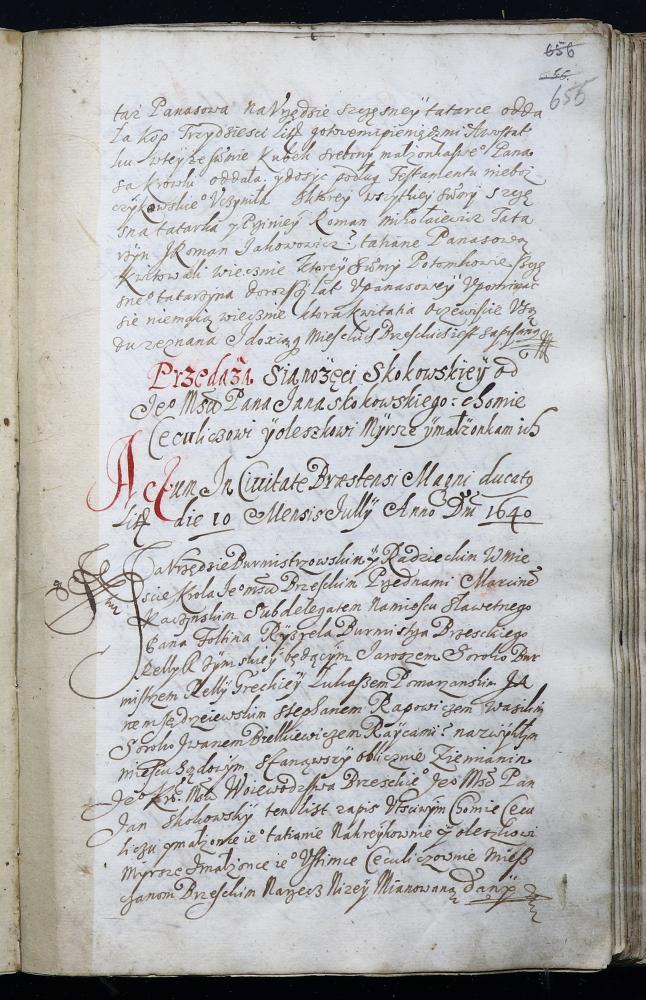 656
655
taż Panasowa na Vrzędzie szczęsney tatarce odda
ła kop Trzydzieści litt gotowemi pieniędzmi
kubek srebrny małżonka swe° Pana
sa krowki oddała y dosyć podług Testamentu nieboż
czykowskie° Vczyniła Ktorey wszytkiey summy szczę
sna tatarka y Roman mikołaiewicz Tata
rzyn Roman Jahowowicz tatiane Panasową
kwitowali wiecznie ktorey summy Potomkowie szczę
sne° tatarzyna dorozszy lat v panasowey Vpominac
sie niemaią wiecznie ktora kwitatia oczewiscie Vrzę
du zeznana J do xiąg Mieskich Brzeskich iest zapisana
Przedaża sianożęci Skokowskiey od
Je° Mści Pana Jana skokowskiego: chomie
Ceculiczowi y oleszkowi Myrsze y małżonkam ich
Actum In Civitate Bræstensi Magni ducat9
Litt die 10 Mensis Jully Anno Dni 1640
Na Vrzędzie Burmistrzowskim y Radzieckim W mie
scie Krola Je° mści Brzeskim Przed nami Marcine
Kaczynskim Subdelegatem na miescu sławetnego
Pana Foltina Burmistrza Brzeskiego
Relly Rzymskiey będącym Jaroszem Soroko Bur
mistrzem Relly Greckiey Lukaszem Pomarzanskim JA
nem Jędrzeiewskim stephanem Rapowiczem wasilim
Soroko Jwanem Bielkiewiczem Raycami: na zwykłym
mieścu Sądowym stanąwszy oblicznie Ziemianin
Je° Kro: Mści Woiewodztwa Brzeskie° Je° Mść Pan
Jan Skokowsky ten list zapis Vtsciwym Chomie Cecu
liczu y małżonce ie° tatianie y oleszkowi
Myrsze J małżonce ie° Vstimce Ceculiczownie miesz
czanom Brzeskim Na rzecz Niżey Mianowaną dany